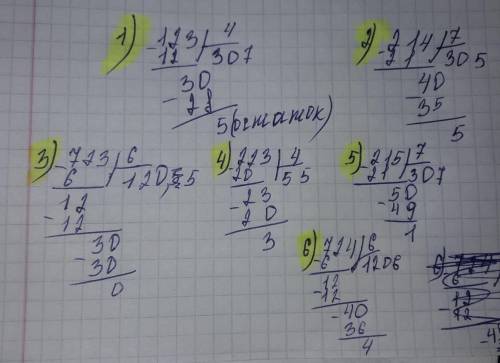 1) -123 | 4
12 | 307
30
- 28
5 (остаток)
2) -214 | 7
21 | 305
40
- 35
5
3) -723 | 6
6 | 120,5
12
- 12
30
- 30
0
4) 223 | 4
20 | 55
- 23
20
3
5) -215 | 7
21 | 307
- 50
49
1
6) -724 | 6
6 | 1206
12
- 12
- 40
36
4